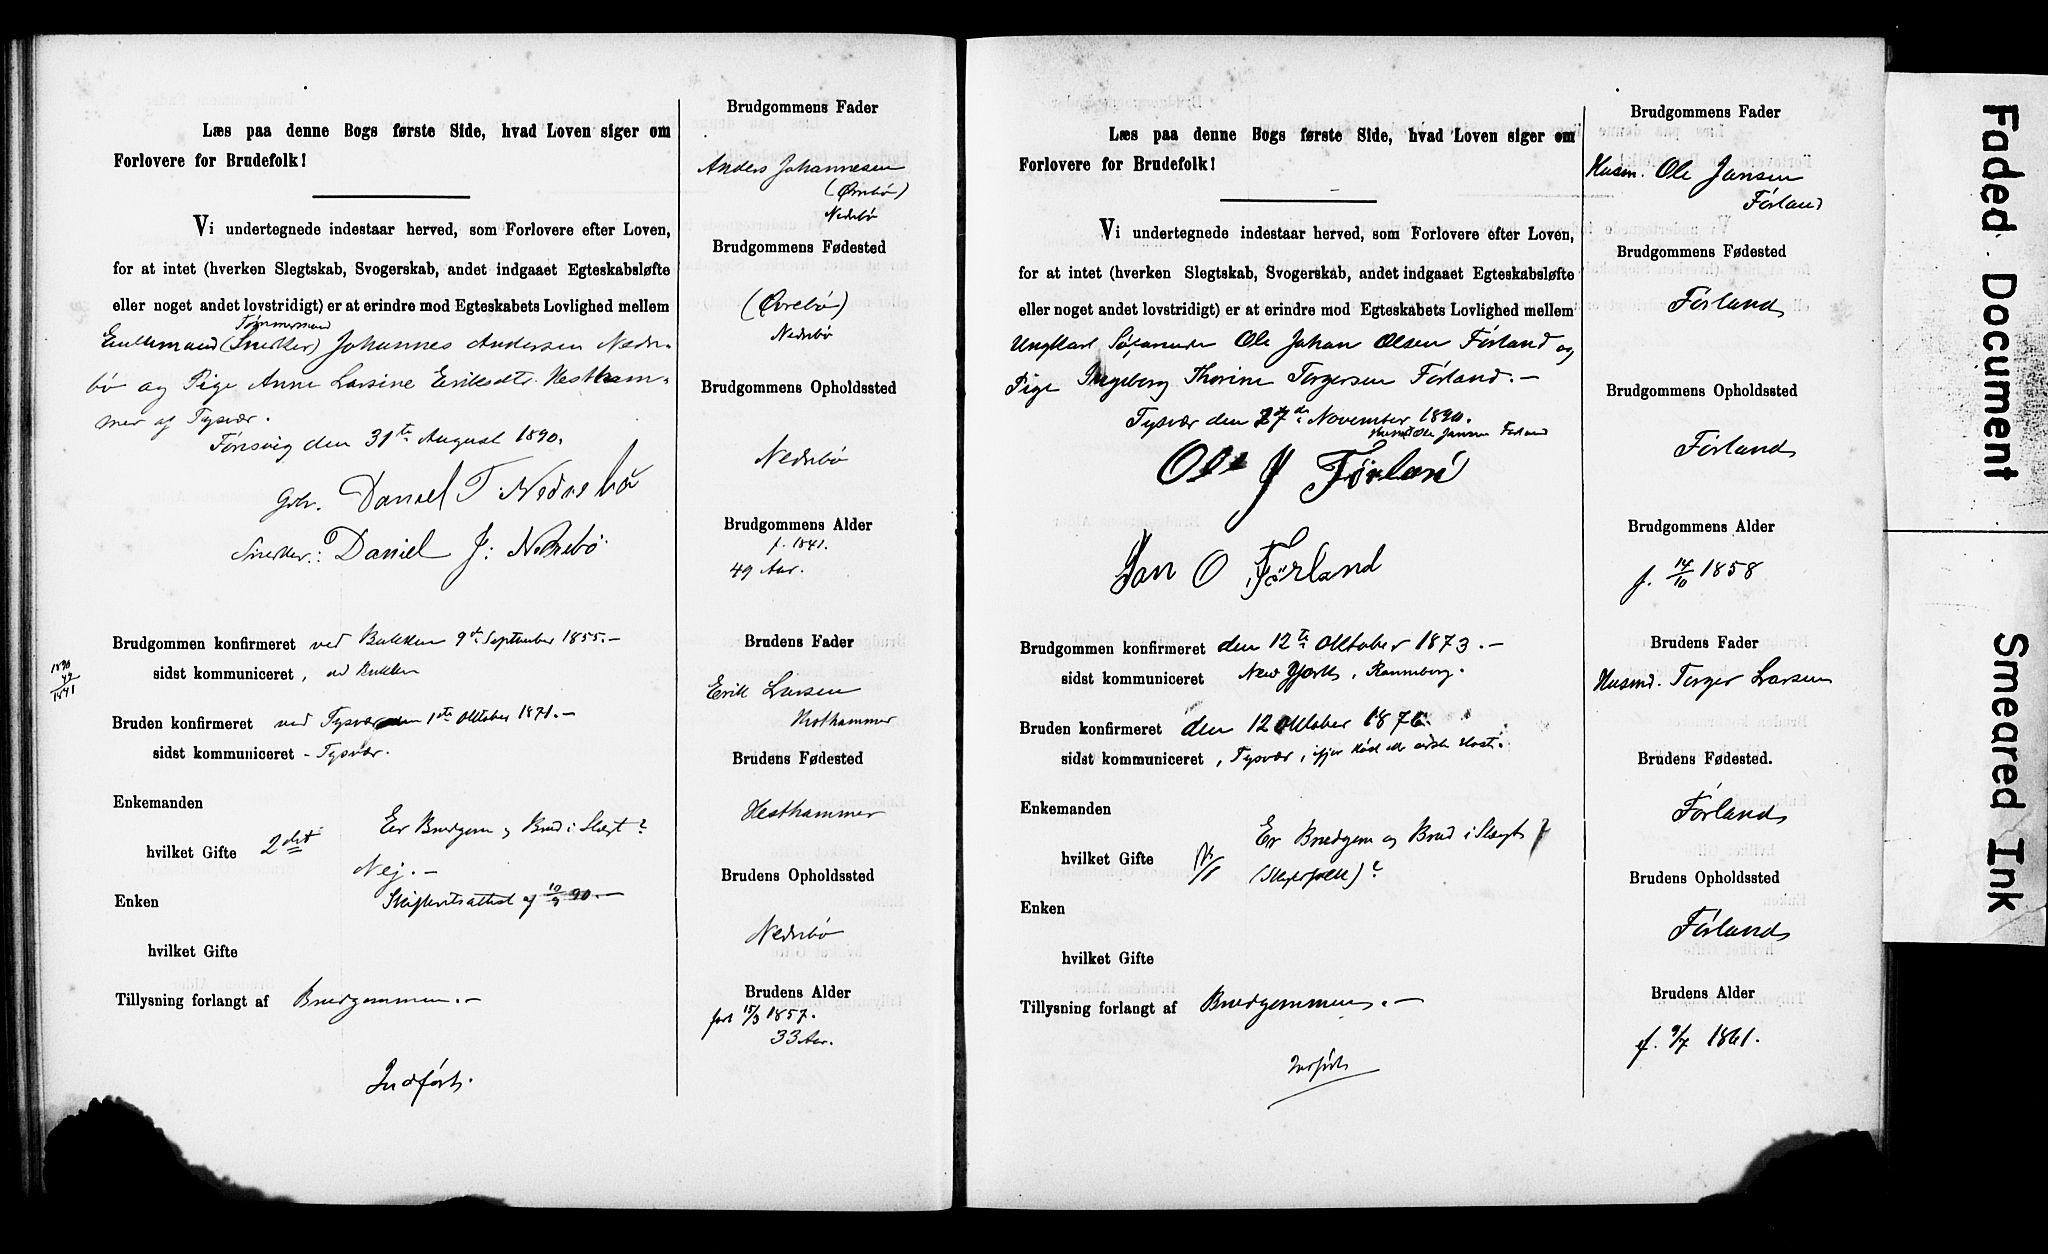 Læs paa denne Bogs første Side, hvad Loven siger om
Forlovere for Brudefolk!
Vi undertegnede indestaar herved, som Forlovere efter Loven,
for at intet (hverken Slegtskab, Svogerskab, andet indgaaet Egteskabsløfte
eller noget andet lovstridigt) er at erindre mod Egteskabets Lovlighed mellem
Tømmermand
Enkemand (Snedker) Johannes Andersen Nedre-
bø og Pige Anne Larsine Eriksdtr. Hestham-
mer af Tysvær.
den 31te August 1890.
Gbr. Daniel T. Nedrebø
Snedker: Daniel J: Nedrebø
Brudgommen konfirmeret ved Bokken 9de September 1855.-
sidst kommuniceret, ved Bokken
1890
49
1841
Bruden konfirmeret ved Tysvær den 1ste Oktober 1871.-
sidst kommuniceret - Tysvær.
Enkemanden
hvilket Gifte 2det
Er Brudgom og Brud i Slægt?
Nej.-
Skifteretsattest af 10/9 90.-
Enken
hvilket Gifte
Tillysning forlangt af Brudgommen.-
Indført.
Brudgommens Fader
Anders Johannesen
(Øvrebø)
Nedrebø
Brudgommens Fødested
(Øvrebø)
Nedrebø
Brudgommens Opholdssted
Nedrebø
Brudgommens Alder
f. 1841.
49 Aar.
Brudens Fader
Erik Larsen
Hesthammer
Brudens Fødested
Hesthammer
Brudens Opholdssted
Nedrebø
Brudens Alder
født 15/3 1857.
33 Aar.
Læs paa denne Bogs første Side, hvad Loven siger om
Forlovere for Brudefolk!
Vi undertegnede indestaar herved, som Forlovere efter Loven,
for at intet (hverken Slegtskab, Svogerskab, andet indgaaet Egteskabsløfte
eller noget andet lovstridigt) er at erindre mod Egteskabets Lovlighed mellem
Ungkarl Søfarende Ole Johan Olsen Førland og
Pige Ingeborg Thorine Torgersen Førland.-
Tysvær den 27de November 1890.
Husmd Ole Jansen Førland
Ole J Førland
Jan O Førland
Brudgommen konfirmeret den 12te Oktober 1873.-
sidst kommuniceret New York,
Bruden konfirmeret den 12 Oktober 1876.
sidst kommuniceret, Tysvær, ifjor Høst eller sidste Høst.
Enkemanden
hvilket Gifte
Er Brudgom og Brud i Slægt?
Enken
hvilket Gifte
Tillysning forlangt af Brudgommen.-
Indført
Brudgommens Fader
Husm. Ole Jansen
Førland
Brudgommens Fødested
Førland
Brudgommens Opholdssted
Førland
Brudgommens Alder
f. 14/10 1858
Brudens Fader
Husmd. Torger Larsen
Brudens Fødested.
Førland
Brudens Opholdssted
Førland
Brudens Alder
f. 9/7 1861.
Faded Document
Smeared Ink